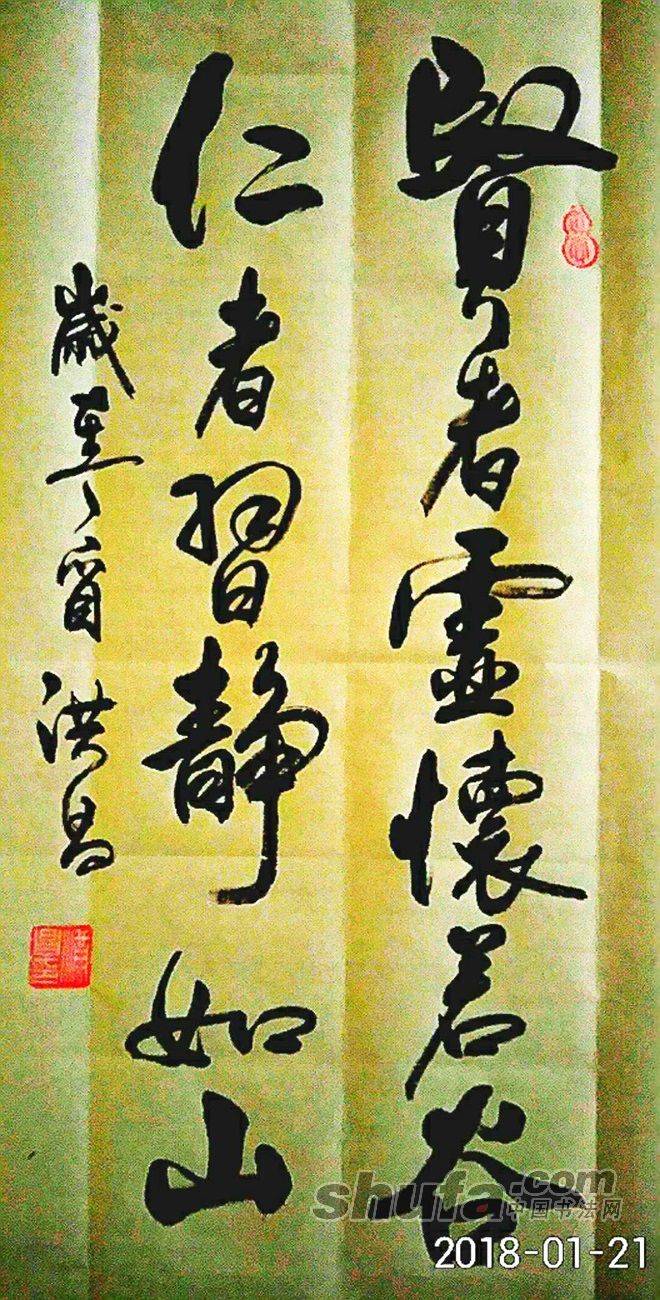 賢者虛懷若谷
仁者習静如山
歲
洪昌
shufa.com
中国书法网
2018-01-21